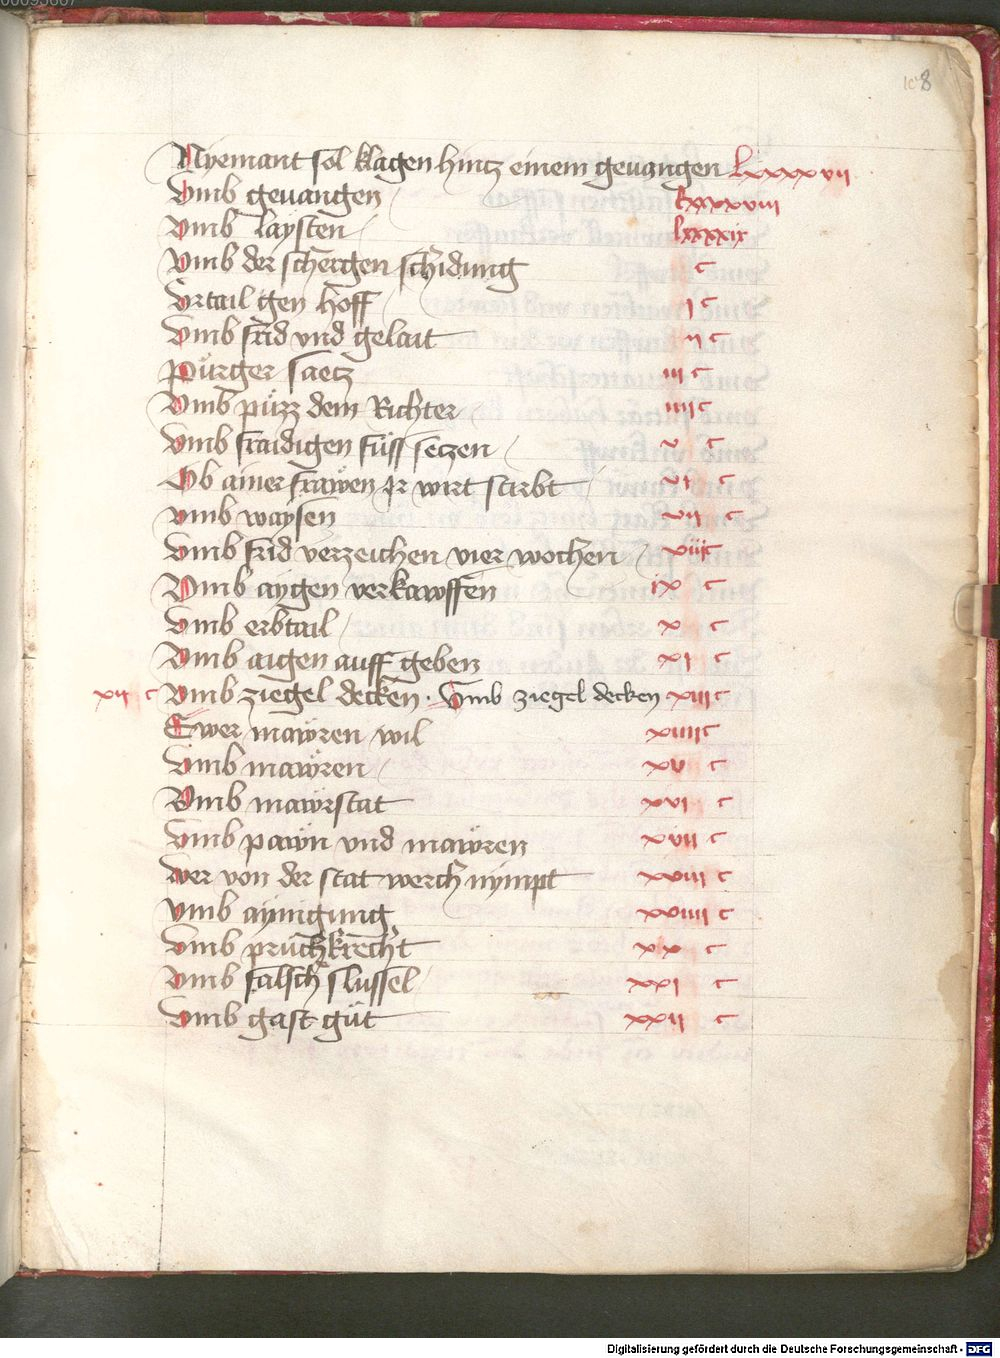 00095667
8
Nyemant sol klagen hintz einem geuangen lxxxxvii
Vmb geuangen lxxxxviii
Vmb laysten lxxxxix
Vmb der schergen schidung c
Vrtail gen hoff i c
Vmb frid vnd gelait ii c
Pürger saetz iii c
Vmb püzz dem Richter iiii c
Vmb fraidigen füss setzen v c
Ob ainer frawen ir wirt stirbt vi c
Vmb waysen vii c
Vmb frid verzeichen vier wochen viii c
Vmb aygen verkawffen ix c
Vmb erbtail x c
Vmb aigen auff geben xi c
xii c Vmb ziegel decken · Vmb ziegel decken xiii c
Swer mawren wil xiiii c
Vmb mawren xv c
Vmb mawrstat xvi c
Vmb pawn vnd mawren xvii c
Wer von der stat werch nympt xviii c
Vmb aynigung xviiii c
Vmb pruchkrecht xx c
Vmb falsch slussel xxi c
Vmb gast güt xxii c
Digitalisierung gefördert durch die Deutsche Forschungsgemeinschaft - DFG